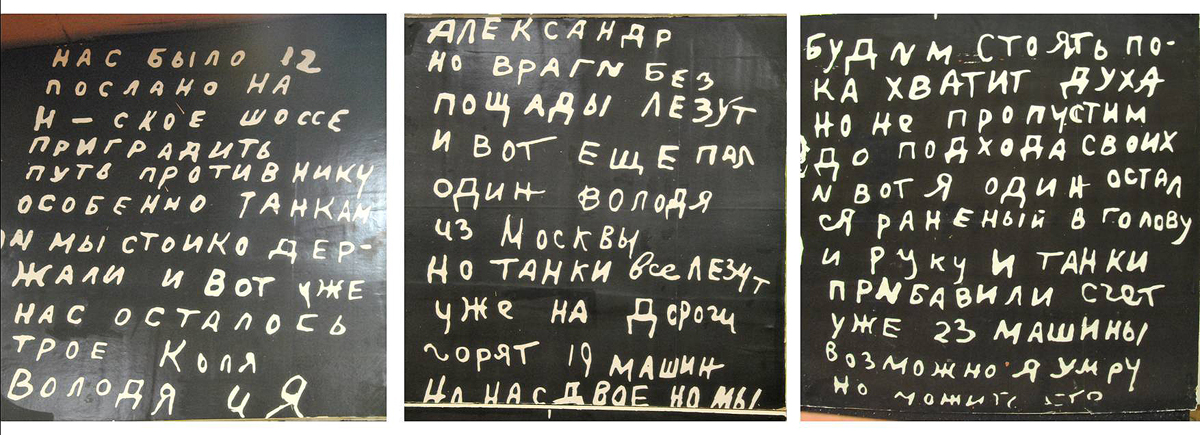 НАС БЫЛО 12
ПОСЛАНО НА
Н-СКОЕ ШОССЕ
ПРИГРАДИТЬ
ПУТЬ ПРОТИВНИКУ
ОСОБЕННО ТАНКАМ
И МЫ СТОИКО ДЕР-
ЖАЛИ И ВОТ УЖЕ
НАС ОСТАЛОСЬ
ТРОЕ КОЛЯ
ВОЛОДЯ И Я
АЛЕКСАНДР
НО ВРАГИ БЕЗ
ПОЩАДЫ ЛЕЗУТ
И ВОТ ЕЩЕ ПАЛ
ОДИН ВОЛОДЯ
ИЗ МОСКВЫ
НО ТАНКИ ВСЕ ЛЕЗУТ
УЖЕ НА ДОРОГИ
ГОРЯТ 19 МАШИН
НО НАС ДВОЕ НО МЫ
БУДИМ СТОЯТЬ ПО-
КА ХВАТИТ ДУХА
НО НЕ ПРОПУСТИМ
ДО ПОДХОДА СВОИХ
И ВОТ Я ОДИН ОСТАЛ
СЯ РАНЕНЫЙ В ГОЛОВУ
И РУКУ И ТАНКИ
ПРИБАВИЛИ СЧЕТ
УЖЕ 23 МАШИНЫ
ВОЗМОЖНО Я УМРУ
НО МОЖИТ